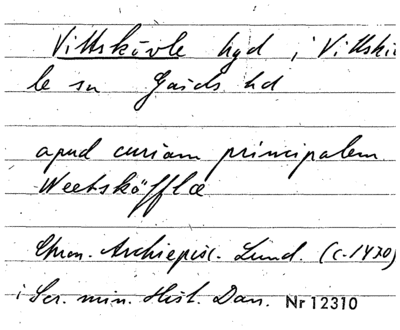 Vittskövle hgd i Vittskö
le sn Gärds hd
apud curiam principalem
Weetsköfflæ
Chron. Archiepisc. Lund. (c. 1470)
i Scr. min. Hist. Dan. Nr 12310